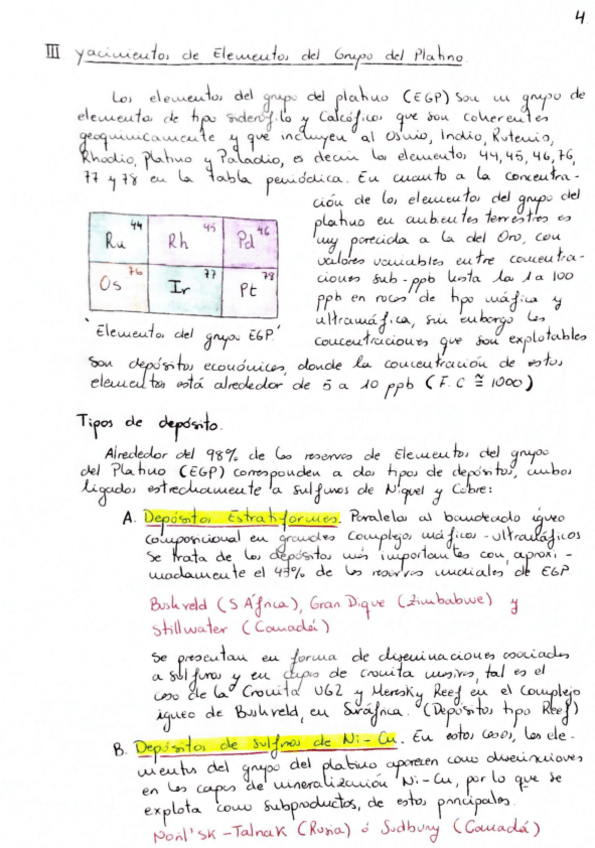 4
III Yacimientos de Elementos del Grupo del Platino.
Los elementos del grupo del platino (EGP) son un grupo de
elementos de tipo siderófilo y Calcófilos que son coherentes
geoquímicamente y que incluyen al Osmio, Indio, Rutenio,
Rhodio, Platino y Paladio, es decir los elementos 44, 45, 46, 76,
77 y 78 en la tabla periódica. En cuanto a la concentra-
ción de los elementos del grupo del
platino en ambientes terrestres es
muy parecida a la del Oro, con
valores variables entre concentra-
ciones sub-ppb hasta la 1 a 100
ppb en rocas de tipo máfica y
ultramáfica, sin embargo las
concentraciones que son explotables
Ru 44 Rh 45 Pd 46
Os 76 Ir 77 Pt 78
"Elementos del grupo EGP."
son depósitos económicos, donde la concentración de estos
elementos está alrededor de 5 a 10 ppb (F.C ≅ 1000)
Tipos de depósito.
Alrededor del 98% de las reservas de Elementos del grupo
del Platino (EGP) corresponden a dos tipos de depósitos, ambos
ligados estrechamente a sulfuros de Níquel y Cobre:
A. Depósitos Estratiformes. Paralelos al bandeado ígneo
composicional en grandes complejos máficos-ultramáficos
Se trata de los depósitos más importantes con, aproxi-
madamente el 45% de las reservas mundiales de EGP.
Bushveld (S África), Gran Dique (Zimbabwe) y
Stillwater (Canadá)
Se presentan en forma de diseminaciones asociadas
a sulfuros y en capas de cromita masiva, tal es el
caso de la Cromita UG2 y Merensky Reef en el Complejo
ígneo de Bushveld, en Suráfrica. (Depósitos tipo Reef)
B. Depósitos de sulfuros de Ni-Cu. En estos casos, los ele-
mentos del grupo del platino aparecen como diseminaciones
en las capas de mineralización Ni-Cu, por lo que se
explota como subproductos, de estos principales.
Noril'sk-Talnak (Rusia) ó Sudbury (Canadá)